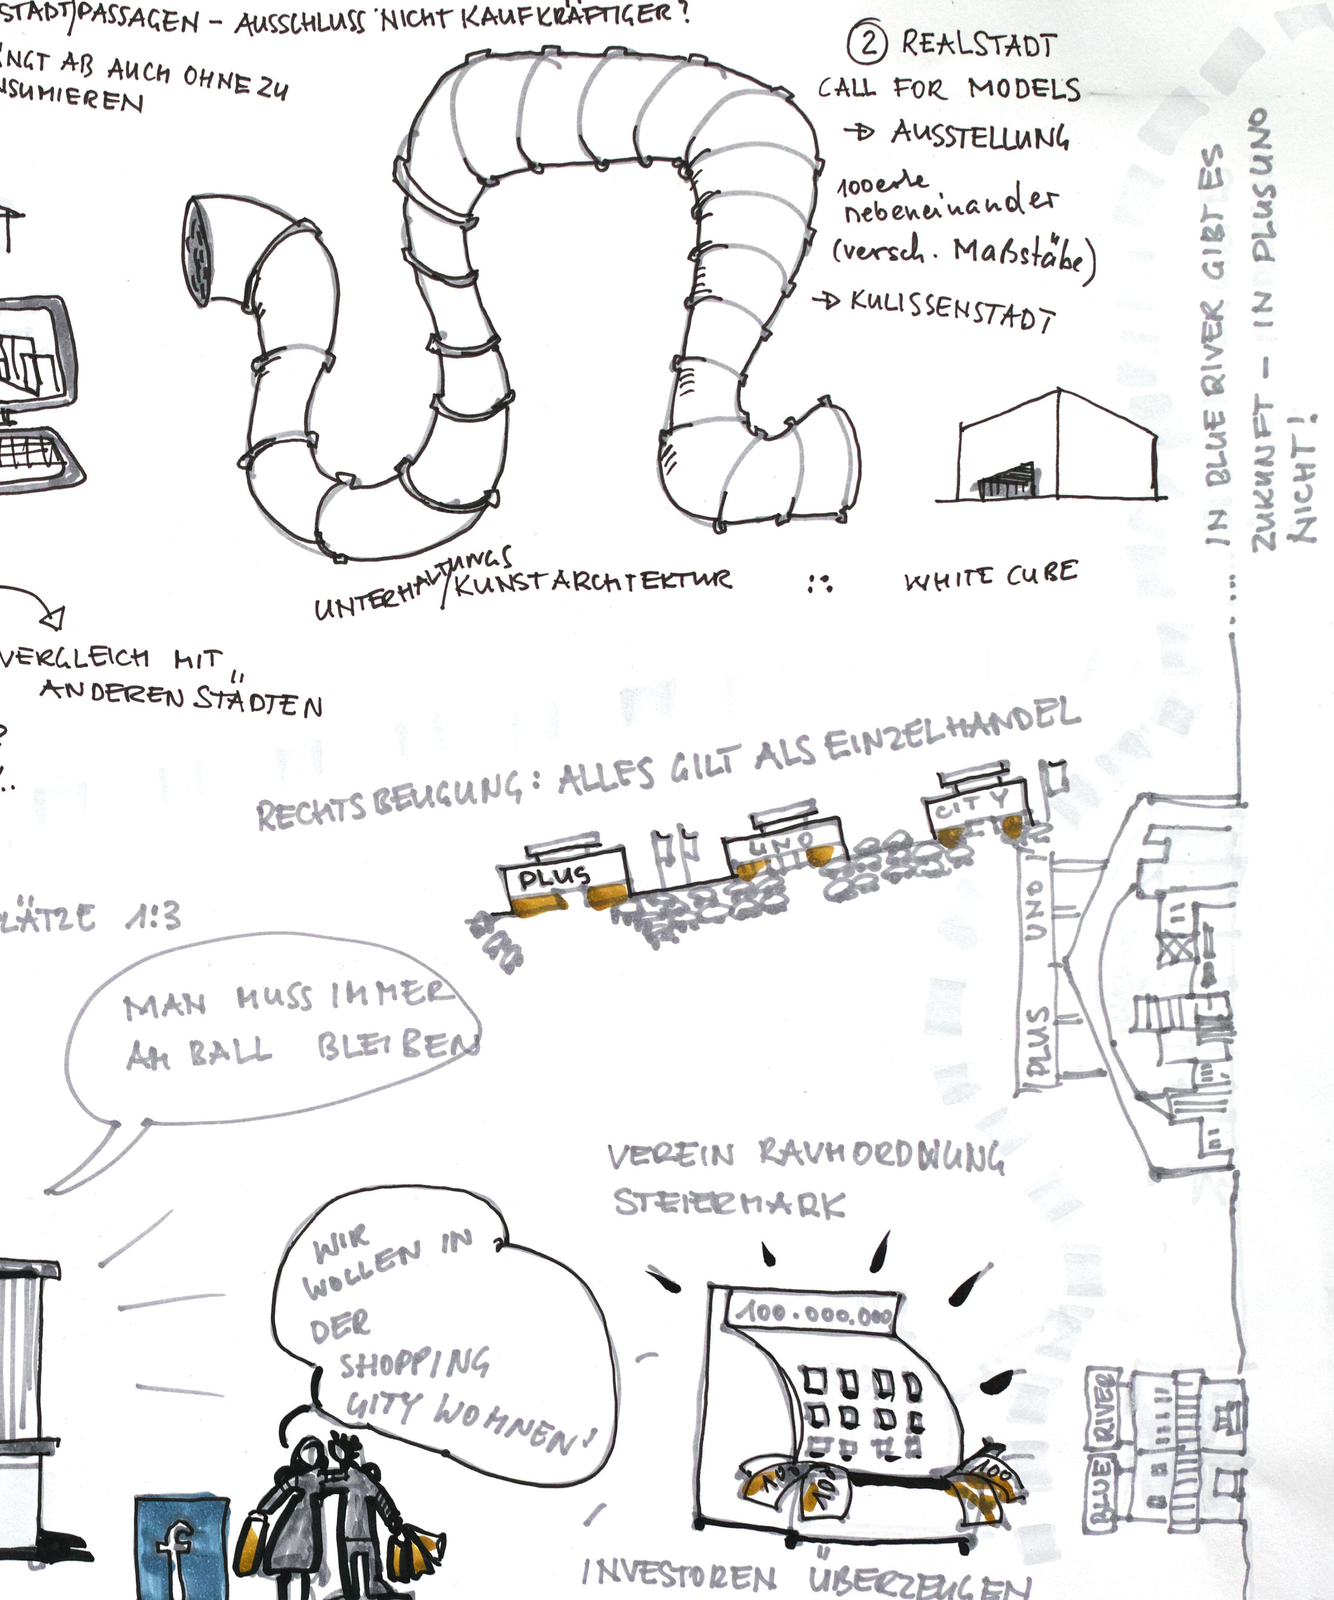 STADT/PASSAGEN – AUSSCHLUSS NICHT KAUFKRÄFTIGER?
ÄNGT AB AUCH OHNE ZU
NSUMIEREN
② REALSTADT
CALL FOR MODELS
→ AUSSTELLUNG
100erte
nebeneinander
(versch. Maßstäbe)
→ KULISSENSTADT
IN BLUE RIVER GIBT ES
ZUKUNFT – IN PLUS UNO
NICHT!
UNTERHALTUNGS
/KUNSTARCHITEKTUR :: WHITE CUBE
VERGLEICH MIT
ANDEREN STÄDTEN
?
RECHTSBEUGUNG: ALLES GILT ALS EINZELHANDEL
PLUS
UNO
CITY
PLUS UNO
LÄTZE 1:3
MAN MUSS IMMER
AM BALL BLEIBEN
VEREIN RAUMORDNUNG
STEIERMARK
WIR
WOLLEN IN
DER
SHOPPING
CITY WOHNEN!
100.000.000
100
100
100
f
BLUE RIVER
INVESTOREN ÜBERZEUGEN